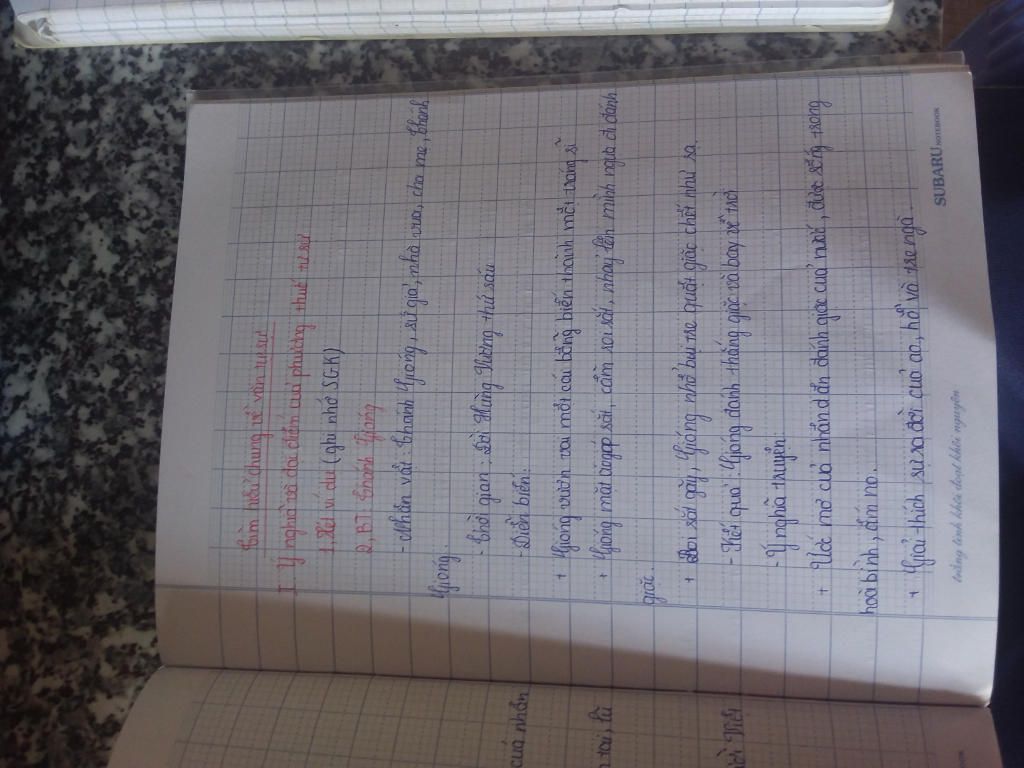 Tìm hiểu chung về văn tự sự
I Ý nghĩa và đặc điểm của phương thức tự sự
1, Xét ví dụ (ghi nhớ SGK)
2, BT: Thánh Gióng
- Nhân vật: Thánh Gióng, sứ giả, nhà vua, cha mẹ, Thánh
Gióng.
- Thời gian: Đời Hùng Vương thứ sáu
- Diễn biến:
+ Gióng vươn vai một cái bỗng biến thành một tráng sĩ
+ Gióng mặt áo giáp sắt, cầm roi sắt, nhảy lên mình ngựa đi đánh
giặc.
+ Roi sắt gãy, Gióng nhổ bụi tre quật giặc chết như rạ
- Kết quả: Gióng đánh thắng giặc và bay về trời
- Ý nghĩa truyện:
+ Ước mơ của nhân dân đánh giặc cứu nước, được sống trong
hoà bình, ấm no.
+ Giải thích sự ra đời của ao, hồ và tre ngà.
trắng tinh khôi đượm khôi nguyên
SUBARU NOTEBOOK
của nhân
tai, là